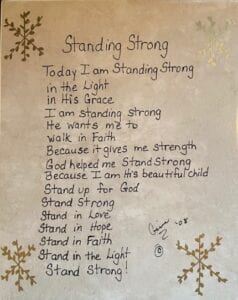 Standing Strong
Today I am Standing Strong
in the Light
in His Grace
I am standing strong
He wants me to
walk in Faith
Because it gives me strength
God helped me Stand Strong
Because I am His beautiful child
Stand up for God
Stand Strong
Stand in Love
Stand in Hope
Stand in Faith
Stand in the Light
Stand Strong!
'08
©